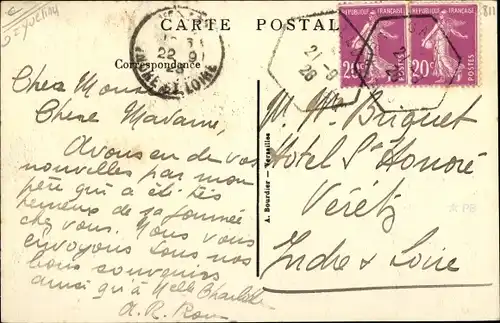 CARTE POSTALE
Correspondance
INDRE ET LOIRE
22 9
21-9
28
REPUBLIQUE FRANÇAISE
20c
REPUBLIQUE FRANÇAISE
20c
Cher Monsieur
Chère Madame,
Avons eu de vos
nouvelles par mon
père qui a été très
heureux de sa journée
chez vous. Nous vous
envoyons tous nos
bons souvenirs
ainsi qu'à Melle Charlotte
A. R.
A. Bourdier — Versailles
M. Mme Briquet
Hotel St Honoré
Véretz
Indre & Loire